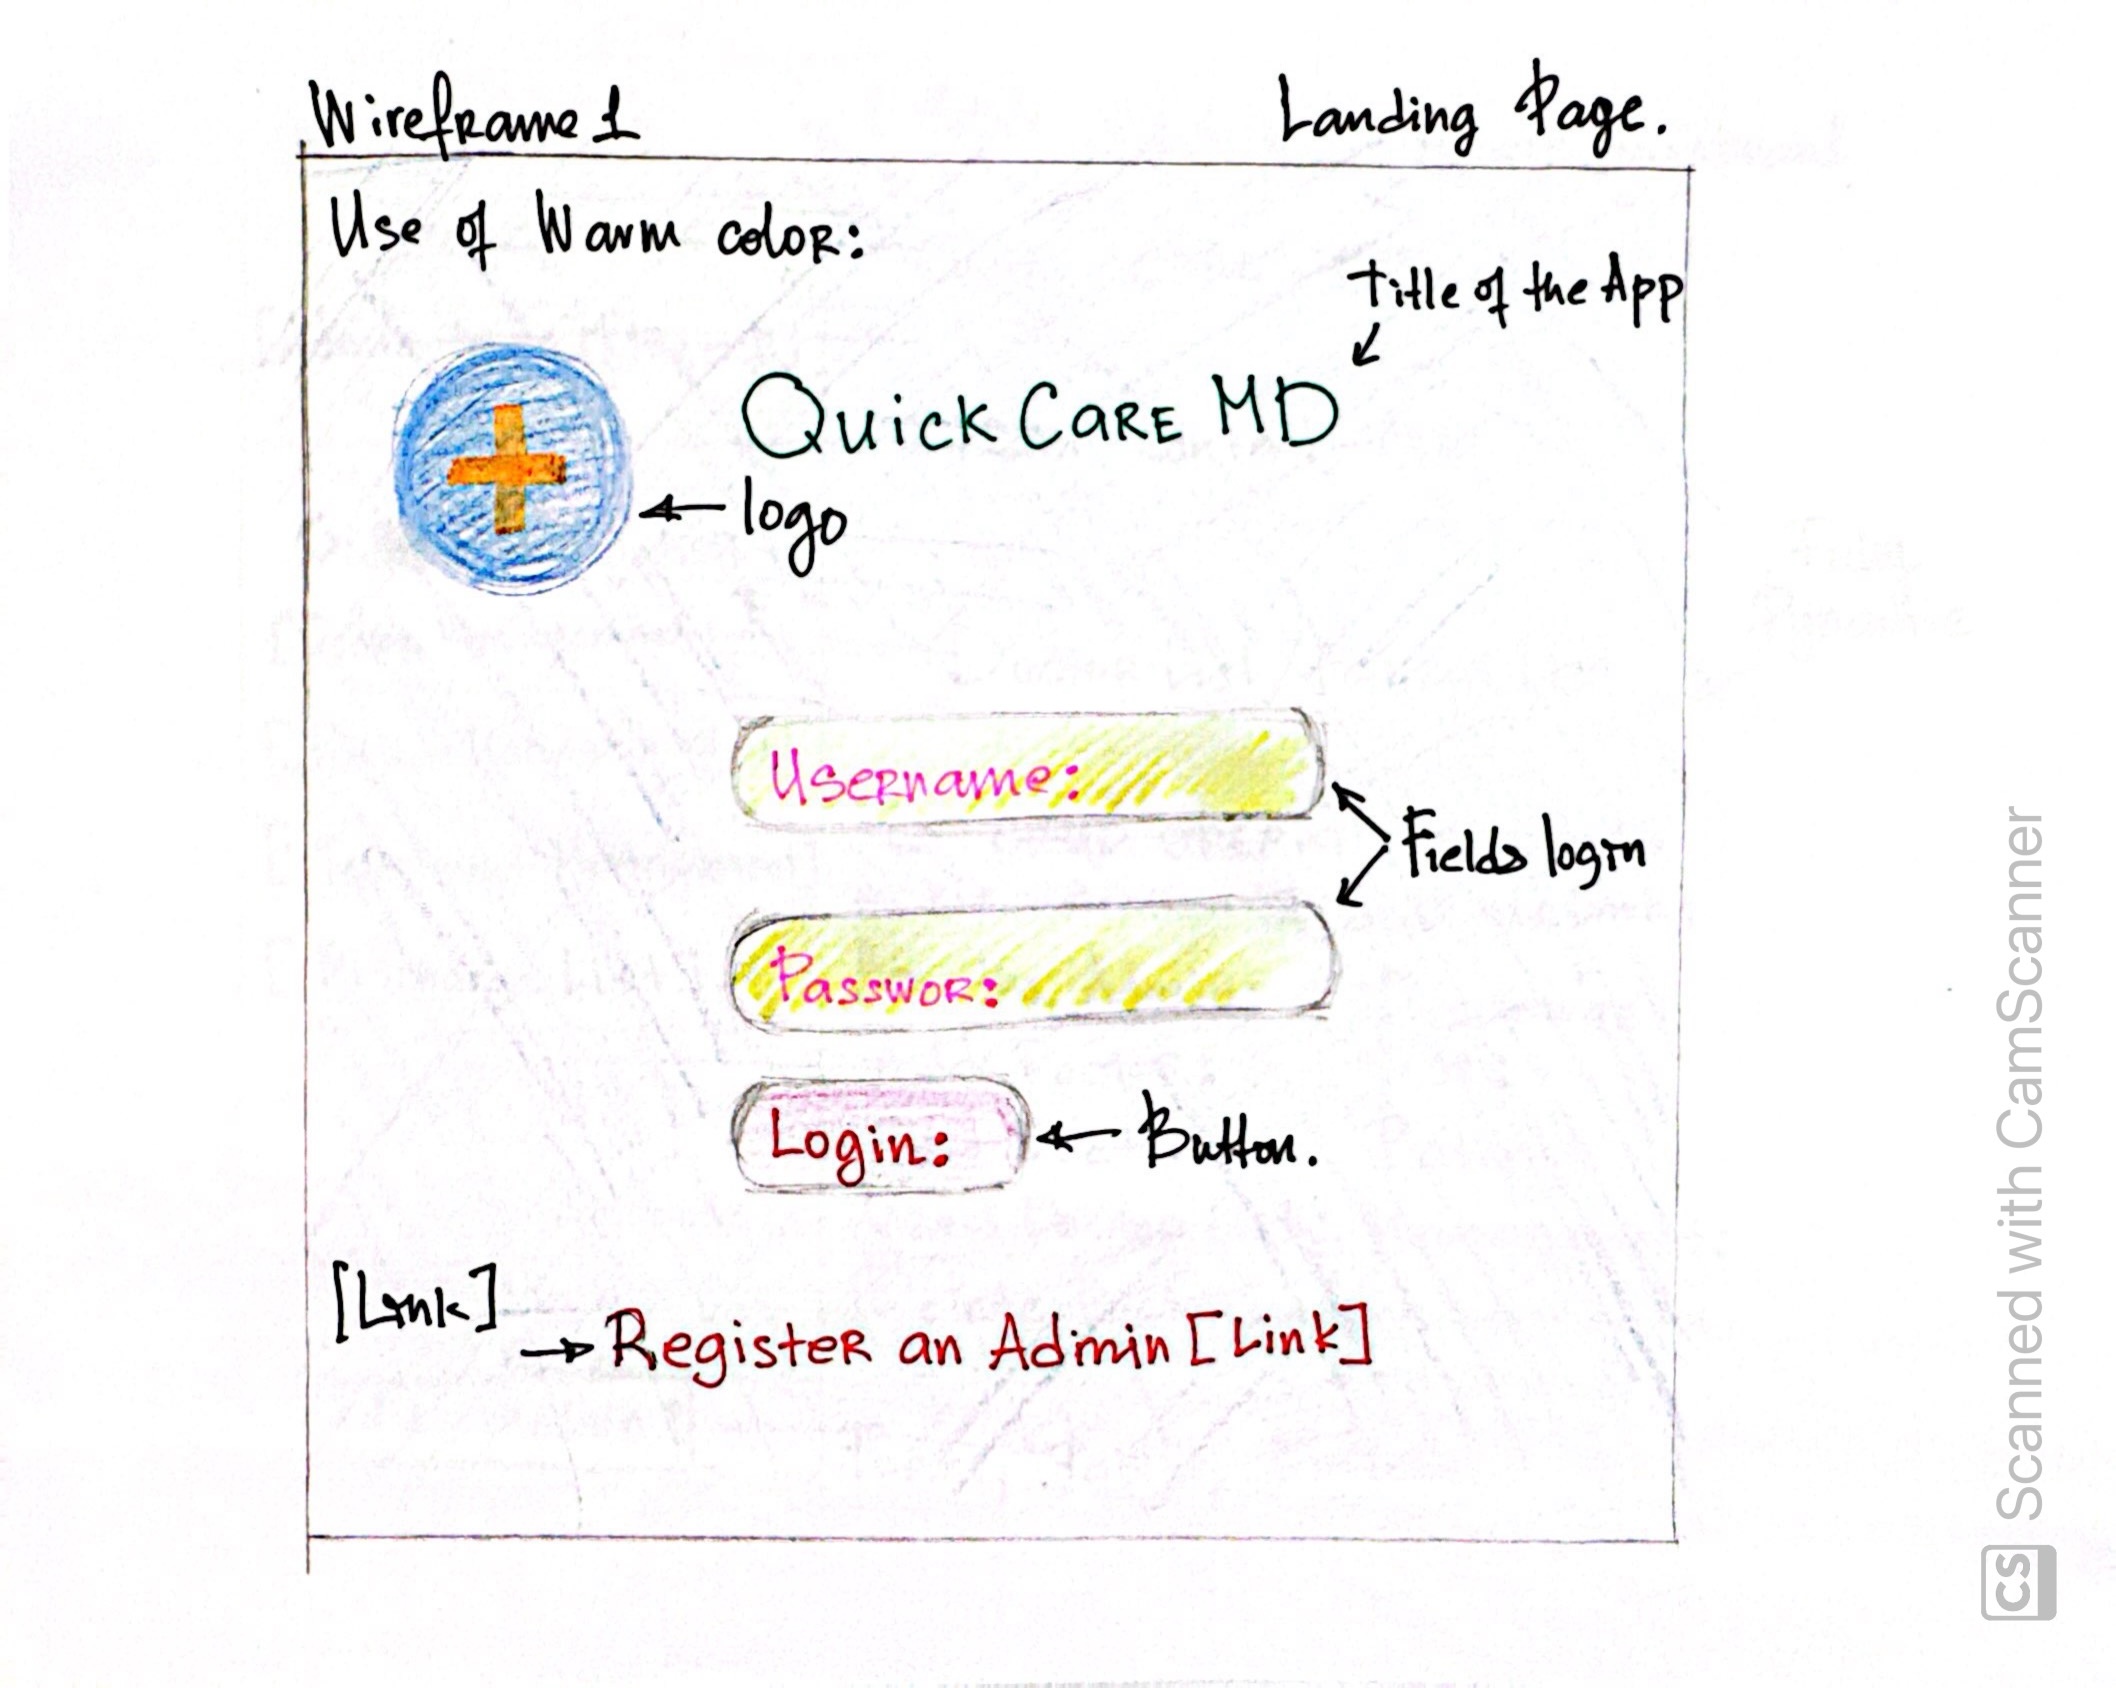 Wireframe 1
Landing Page.
Use of Warm color:
Title of the App
Quick Care MD
logo
Username:
Fields login
Passwor:
Login:
Button.
[Link]
Register an Admin [Link]
CS Scanned with CamScanner